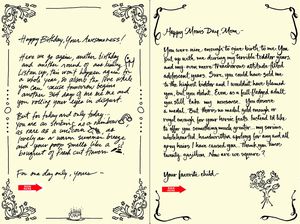 Happy Birthday, Your Awesomeness!
Here we go again, another birthday
and another round of me having to
Listen up, this won't happen again for
a whole year, so absorb the love while
you can, 'cause tomorrow begins
another 364 days of me and
you rolling your eyes in disgust.
But for today and only today
you are as
as rare as a unicorn
lovely as a warm summer breeze
and your poop smells like a
bouquet of fresh cut flowers.
For one day only, yours —
Happy Mom's Day, Mom—
You were nice enough to give birth to me. You
put up with me during my horrible toddler years
and my even more horrendous attitude-filled
adolescent years. Sure, you could have sold me
to the highest bidder and I wouldn't have blamed
you, but you didn't. Even as a full-fledged adult
you still take my nonsense. You deserve a
medal. But there's no medal gold enough or
royal enough for your heroic feats. Instead I'd like
to offer you something much greater - my serious,
wholehearted, handwritten apology for any and all
gray hairs I have caused you. Thank you. Now,
burning question. Now are we square?
Your favorite child—